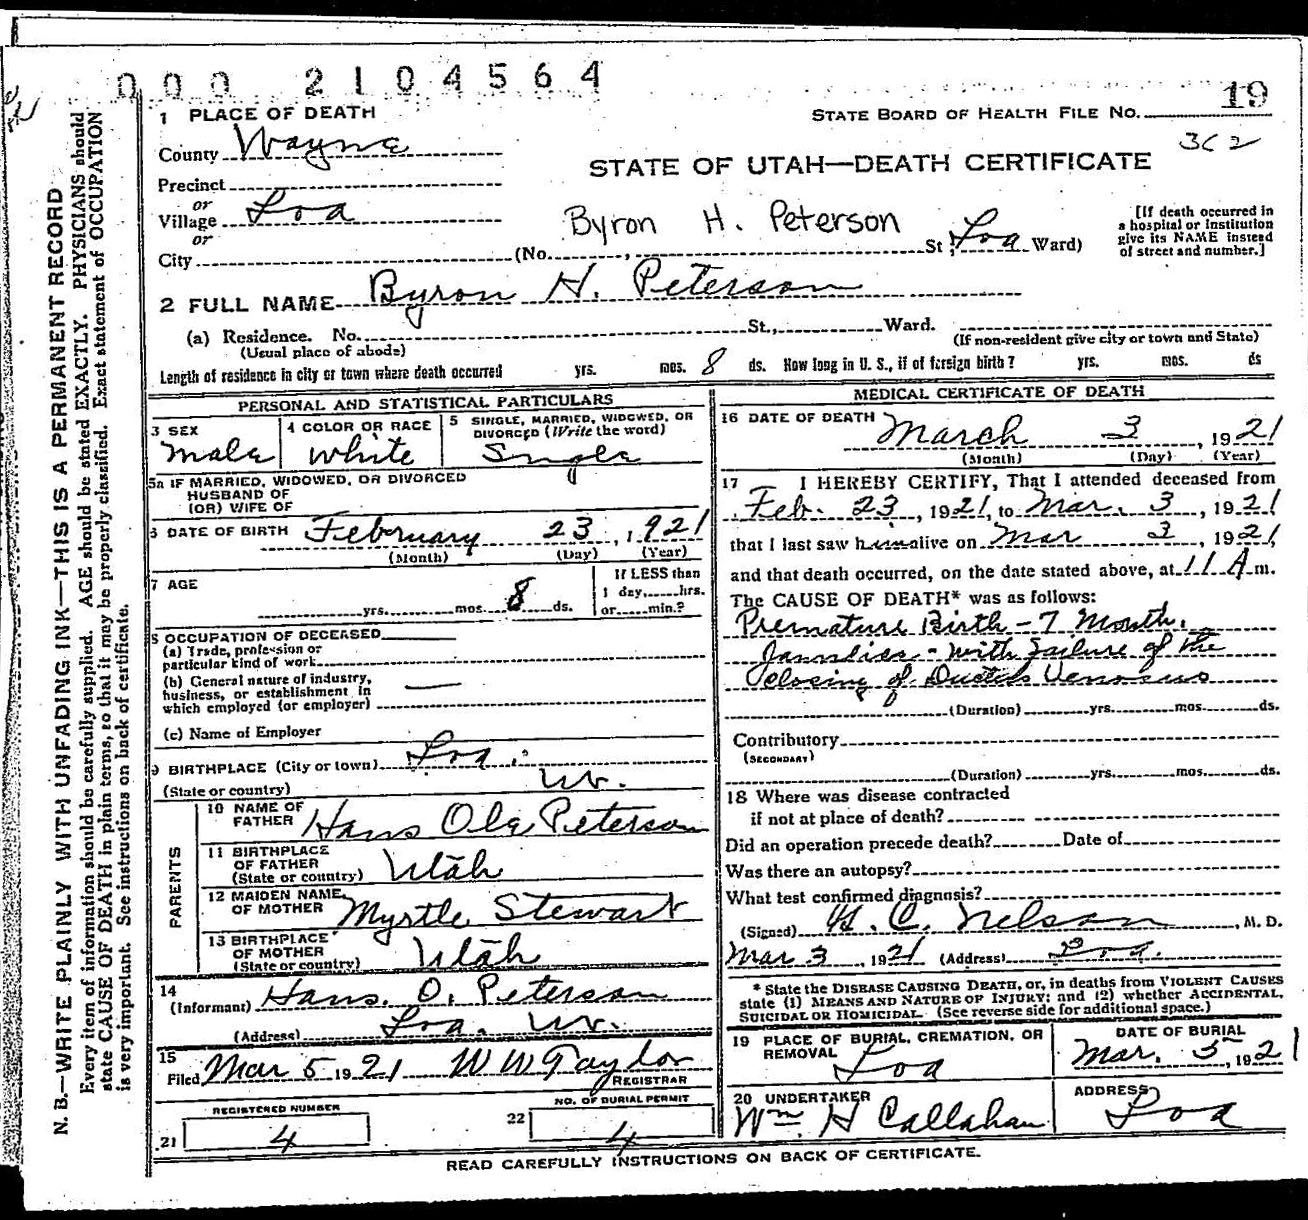 0 0 0 2 1 0 4 5 6 4
N. B.—WRITE PLAINLY WITH UNFADING INK—THIS IS A PERMANENT RECORD
Every item of information should be carefully supplied. AGE should be stated EXACTLY. PHYSICIANS should
state CAUSE OF DEATH in plain terms, so that it may be properly classified. Exact statement of OCCUPATION
is very important. See instructions on back of certificate.
1 PLACE OF DEATH
STATE BOARD OF HEALTH FILE No. 19
County Wayne
362
STATE OF UTAH—DEATH CERTIFICATE
Precinct
or
Village Loa
or
City
Byron H. Peterson
(No. , St; Loa Ward)
[If death occurred in
a hospital or institution
give its NAME instead
of street and number.]
2 FULL NAME Byron H. Peterson
(a) Residence. No. St., Ward.
(Usual place of abode)
(If non-resident give city or town and State)
Length of residence in city or town where death occurred yrs. mos. 8 ds. How long in U. S., if of foreign birth? yrs. mos. ds
PERSONAL AND STATISTICAL PARTICULARS
3 SEX
Male
4 COLOR OR RACE
White
5 SINGLE, MARRIED, WIDOWED, OR
DIVORCED (Write the word)
Single
5a IF MARRIED, WIDOWED, OR DIVORCED
HUSBAND OF
(OR) WIFE OF
6 DATE OF BIRTH February 23, 1921
(Month) (Day) (Year)
7 AGE
yrs. mos. 8 ds.
If LESS than
1 day, hrs.
or min.?
8 OCCUPATION OF DECEASED
(a) Trade, profession or
particular kind of work
(b) General nature of industry,
business, or establishment in
which employed (or employer)
(c) Name of Employer
9 BIRTHPLACE (City or town) Loa.
(State or country) Ut.
PARENTS
10 NAME OF
FATHER Hans Ole Peterson
11 BIRTHPLACE
OF FATHER
(State or country) Utah
12 MAIDEN NAME
OF MOTHER Myrtle Stewart
13 BIRTHPLACE
OF MOTHER
(State or country) Utah
14
(Informant) Hans. O. Peterson
(Address) Loa. Ut.
15
Filed Mar 5 1921 W W Taylor
REGISTRAR
REGISTERED NUMBER
21 4
NO. OF BURIAL PERMIT
22 4
MEDICAL CERTIFICATE OF DEATH
16 DATE OF DEATH March 3, 1921
(Month) (Day) (Year)
17 I HEREBY CERTIFY, That I attended deceased from
Feb. 23, 1921, to Mar. 3, 1921
that I last saw him alive on Mar 3, 1921,
and that death occurred, on the date stated above, at 11 A m.
The CAUSE OF DEATH* was as follows:
Premature Birth - 7 Month.
- with failure of the
closing of Ductus Venosus
(Duration) yrs. mos. ds.
Contributory
(SECONDARY)
(Duration) yrs. mos. ds.
18 Where was disease contracted
if not at place of death?
Did an operation precede death? Date of
Was there an autopsy?
What test confirmed diagnosis?
(Signed) C. Nelson, M. D.
Mar 3, 1921 (Address) Loa.
* State the DISEASE CAUSING DEATH, or, in deaths from VIOLENT CAUSES
state (1) MEANS AND NATURE OF INJURY; and (2) whether ACCIDENTAL,
SUICIDAL OR HOMICIDAL. (See reverse side for additional space.)
19 PLACE OF BURIAL, CREMATION, OR
REMOVAL Loa
DATE OF BURIAL
Mar. 5, 1921
20 UNDERTAKER
Wm H Callahan
ADDRESS
Loa
READ CAREFULLY INSTRUCTIONS ON BACK OF CERTIFICATE.